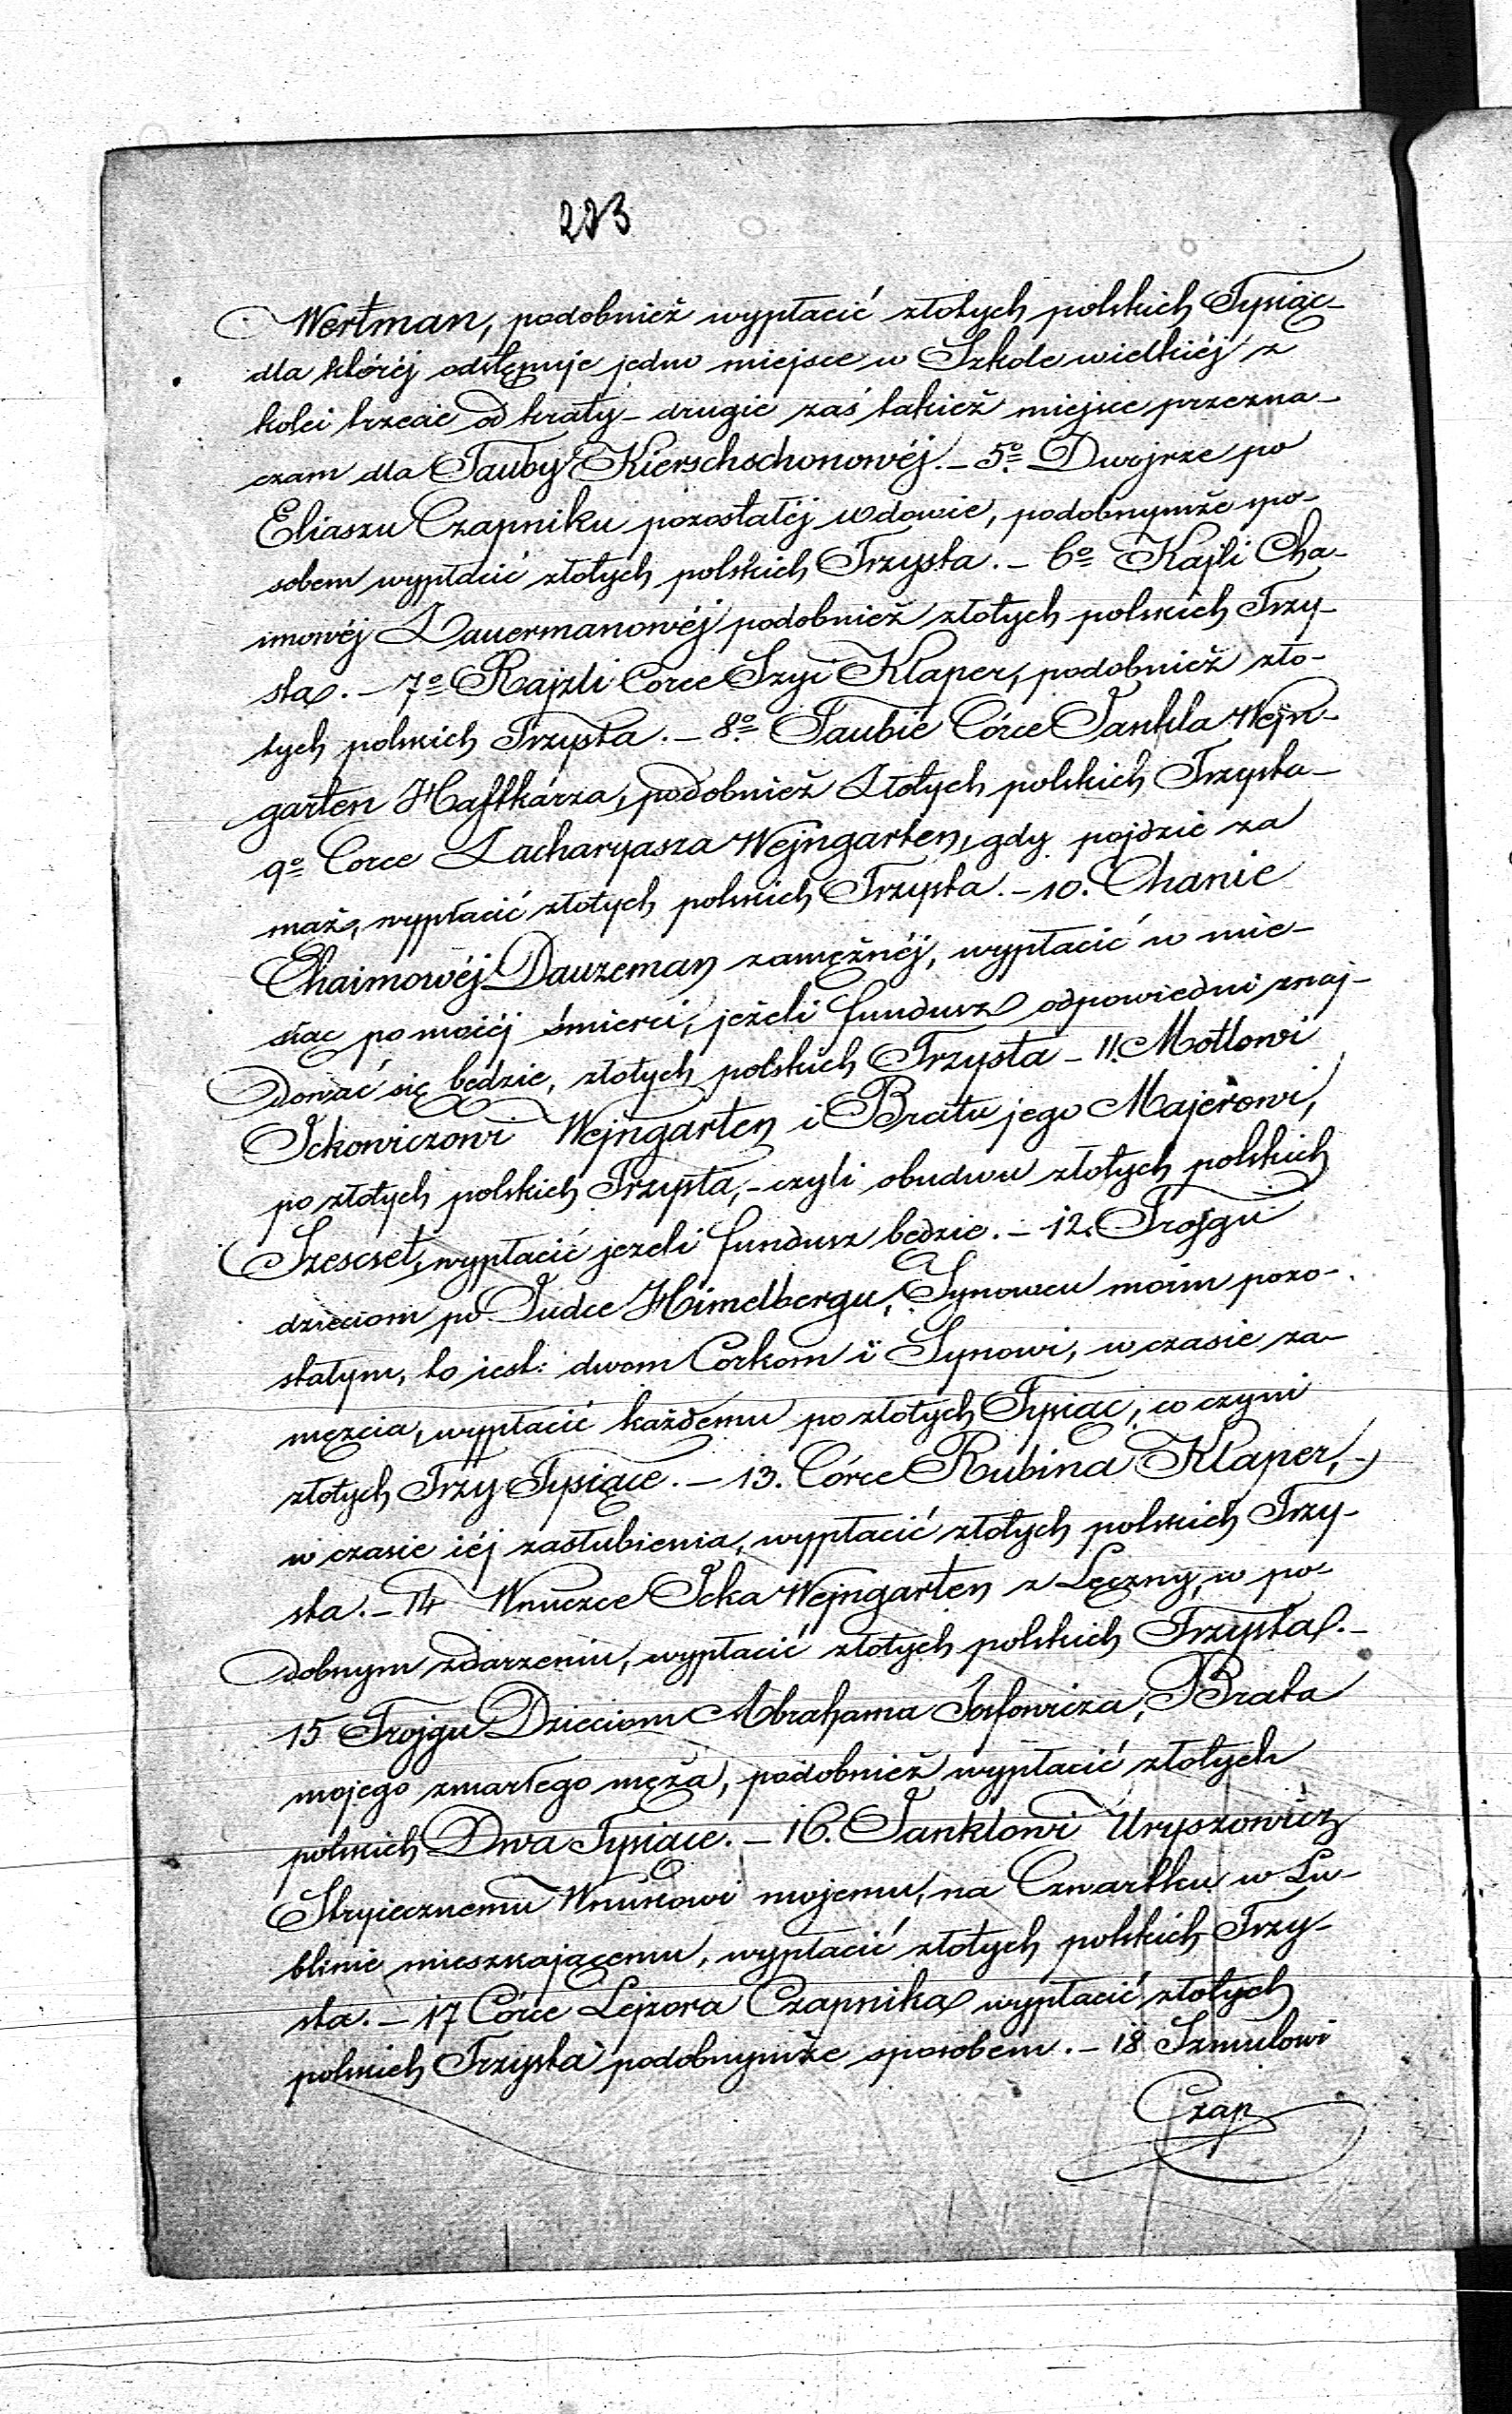 223
Wertman, podobnież wypłacić złotych polskich Tysiąc
dla któréj odstępuje jedno miejsce w Szkole wielkiéj z
kolei trzecie od kraty – drugie zaś takież miejsce przezna-
czam dla Tauby Kierschschonowéj. – 5o Dwojrze po
Eliaszu Czapniku pozostałéj wdowie, podobnymże spo-
sobem wypłacić złotych polskich Trzysta. – 6o Kajli Cha-
imowéj Lauermanowéj podobnież złotych polskich Trzy-
sta. – 7o Rajzli Corce Szyi Klaper, podobnież zło-
tych polskich Trzysta. – 8o Taubie Córce Jankla Wejn-
garten Haftkarza, podobnież Złotych polskich Trzysta –
9o Corce Zacharyasza Wejngarten, gdy pojdzie za
mąż, wypłacić złotych polskich Trzysta. – 10. Chanie
Chaimowéj Dauzeman zamężnéj, wypłacić w mie-
siąc po moiéj śmierci, jeżeli fundusz odpowiedni znaj-
dować się będzie, złotych polskich Trzysta – 11. Motlowi
Ickowiczowi Wejngarten i Bratu jego Majerowi,
po złotych polskich Trzysta, – czyli obudwu złotych polskich
Szescset, wypłacić jezeli fundusz będzie. – 12. Trojgu
dzieciom po Judce Himelbergu, Synowcu moim pozo-
stałym, to iest: dwom Corkom i Synowi, w czasie za-
męzcia, wypłacić każdemu po złotych Tysiąc, co czyni
złotych Trzy Tysiące. – 13. Córce Rubina Klaper, –
w czasie iéj zaslubienia, wypłacić złotych polskich Trzy-
sta. – 14 Wnuczce Icka Wejngarten z Lęczny, w po-
dobnym zdarzeniu, wypłacić złotych polskich Trzysta. –
15 Trojgu Dzieciom Abrahama Josfowicza, Brata
mojego zmarłego męża, podobnież wypłacić złotych
polskich Dwa Tysiące. – 16. Janklowi Uryszowicz
Stryiecznemu Wnukowi mojemu, na Czwartku w Lu-
blinie mieszkającemu, wypłacić złotych polskich Trzy-
sta. – 17 Córce Lejzora Czapnika wypłacić złotych
polskich Trzysta podobnymże sposobem. – 18 Szmulowi
Czap